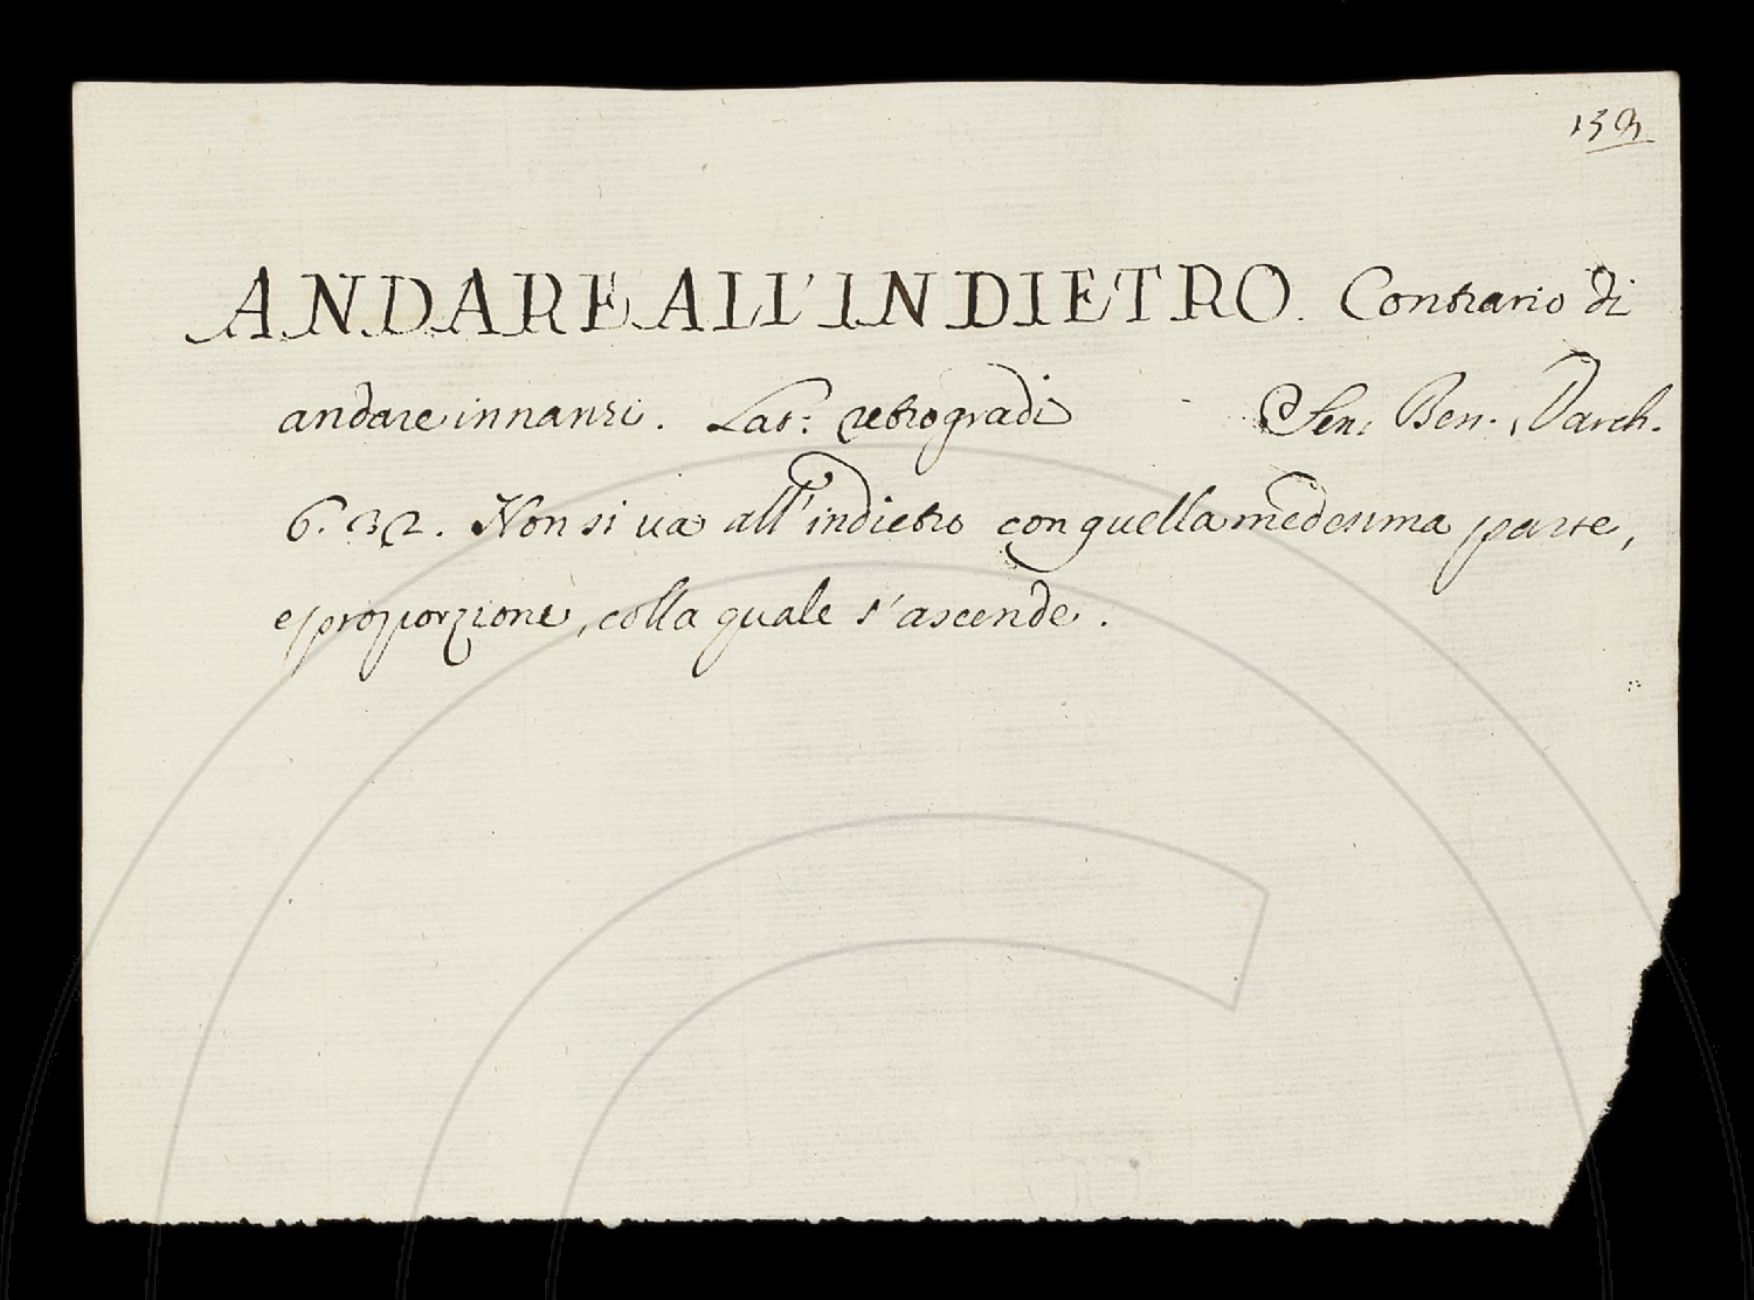 159
ANDARE ALL'INDIETRO. Contrario di
andare innanzi. Lat: retrogradi Sen. Ben. Varch.
6. 32. Non si va all'indietro con quella medesima parte,
e proporzione, colla quale s'ascende.